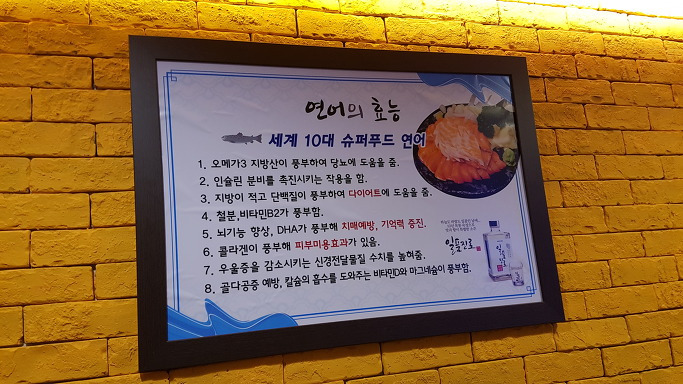 연어의 효능
세계 10대 슈퍼푸드 연어
1. 오메가3 지방산이 풍부하여 당뇨에 도움을 줌.
2. 인슐린 분비를 촉진시키는 작용을 함.
3. 지방이 적고 단백질이 풍부하여 다이어트에 도움을 줌.
4. 철분,비타민B2가 풍부함.
5. 뇌기능 향상, DHA가 풍부해 치매예방, 기억력 증진.
6. 콜라겐이 풍부해 피부미용효과가 있음.
7. 우울증을 감소시키는 신경전달물질 수치를 높여줌.
8. 골다공증 예방, 칼슘의 흡수를 도와주는 비타민D와 마그네슘이 풍부함.
일품진로